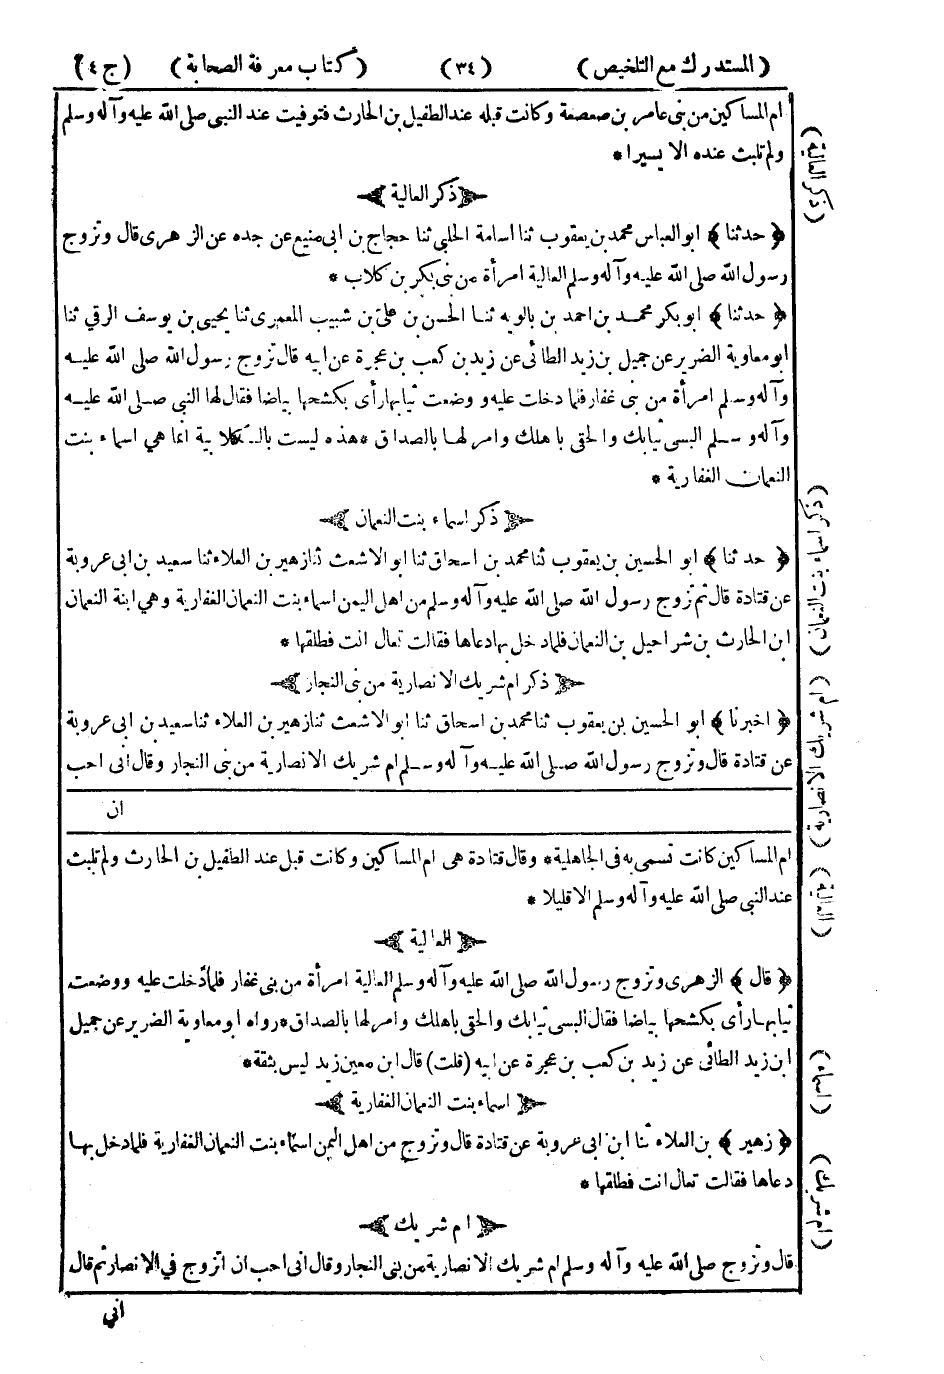 (المستدرك مع التلخيص) (٣٤) (كتاب معرفة الصحابة) (ج ٤)
ام المساكين من بنى عامر بن صعصعة وكانت قبله عند الطفيل بن الحارث فتوفيت عند النبى صلى الله عليه وآله وسلم
ولم تلبث عنده الا يسيرا *
ذكر العالية
﴿ حدثنا ﴾ ابو العباس محمد بن يعقوب ثنا اسامة الحلبي ثنا حجاج بن ابى منيع عن جده عن الزهرى قال وتزوج
رسول الله صلى الله عليه وآله وسلم العالية امرأة من بنى بكر بن كلاب *
﴿ حدثنا ﴾ ابو بكر محمد بن احمد بن بالويه ثنا الحسن بن على بن شبيب المعمرى ثنا يحيى بن يوسف الرقي ثنا
ابو معاوية الضرير عن جميل بن زيد الطائى عن زيد بن كعب بن عجرة عن ابيه قال تزوج رسول الله صلى الله عليه
وآله وسلم امرأة من بنى غفار فلما دخلت عليه ووضعت ثيابها رأى بكشحها بياضا فقال لها النبى صلى الله عليه
وآله وسلم البسى ثيابك والحقى باهلك وامر لها بالصداق * هذه ليست بالكلابية انما هي اسماء بنت
النعمان الغفارية *
ذكر اسماء بنت النعمان
﴿ حدثنا ﴾ ابو الحسين بن يعقوب ثنا محمد بن اسحاق ثنا ابو الاشعث ثنا زهير بن العلاء ثنا سعيد بن ابى عروبة
عن قتادة قال ثم تزوج رسول الله صلى الله عليه وآله وسلم من اهل اليمن اسماء بنت النعمان الغفارية وهي ابنة النعمان
ابن الحارث بن شراحيل بن النعمان فلما دخل بها دعاها فقالت تعال انت فطلقها *
ذكر ام شريك الانصارية من بنى النجار
﴿ اخبرنا ﴾ ابو الحسين بن يعقوب ثنا محمد بن اسحاق ثنا ابو الاشعث ثنا زهير بن العلاء ثنا سعيد بن ابى عروبة
عن قتادة قال وتزوج رسول الله صلى الله عليه وآله وسلم ام شريك الانصارية من بنى النجار وقال انى احب
ان
ام المساكين كانت تسمى به فى الجاهلية * وقال قتادة هى ام المساكين وكانت قبل عند الطفيل بن الحارث ولم تلبث
عند النبى صلى الله عليه وآله وسلم الا قليلا *
العالية
﴿ قال ﴾ الزهرى وتزوج رسول الله صلى الله عليه وآله وسلم العالية امرأة من بنى غفار فلما دخلت عليه ووضعت
ثيابها رأى بكشحها بياضا فقال البسى ثيابك والحقى باهلك وامر لها بالصداق * رواه ابو معاوية الضرير عن جميل
ابن زيد الطائى عن زيد بن كعب بن عجرة عن ابيه (قلت) قال ابن معين زيد ليس بثقة *
اسماء بنت النعمان الغفارية
﴿ زهير ﴾ بن العلاء ثنا ابن ابى عروبة عن قتادة قال وتزوج من اهل اليمن اسماء بنت النعمان الغفارية فلما دخل بها
دعاها فقالت تعال انت فطلقها *
ام شريك
قال وتزوج صلى الله عليه وآله وسلم ام شريك الانصارية من بنى النجار وقال انى احب ان اتزوج في الانصار ثم قال
اني
(ذكر العالية)
(ذكر اسماء بنت النعمان)
(ام شريك الانصارية)
(العالية)
(اسماء)
(ام شريك)